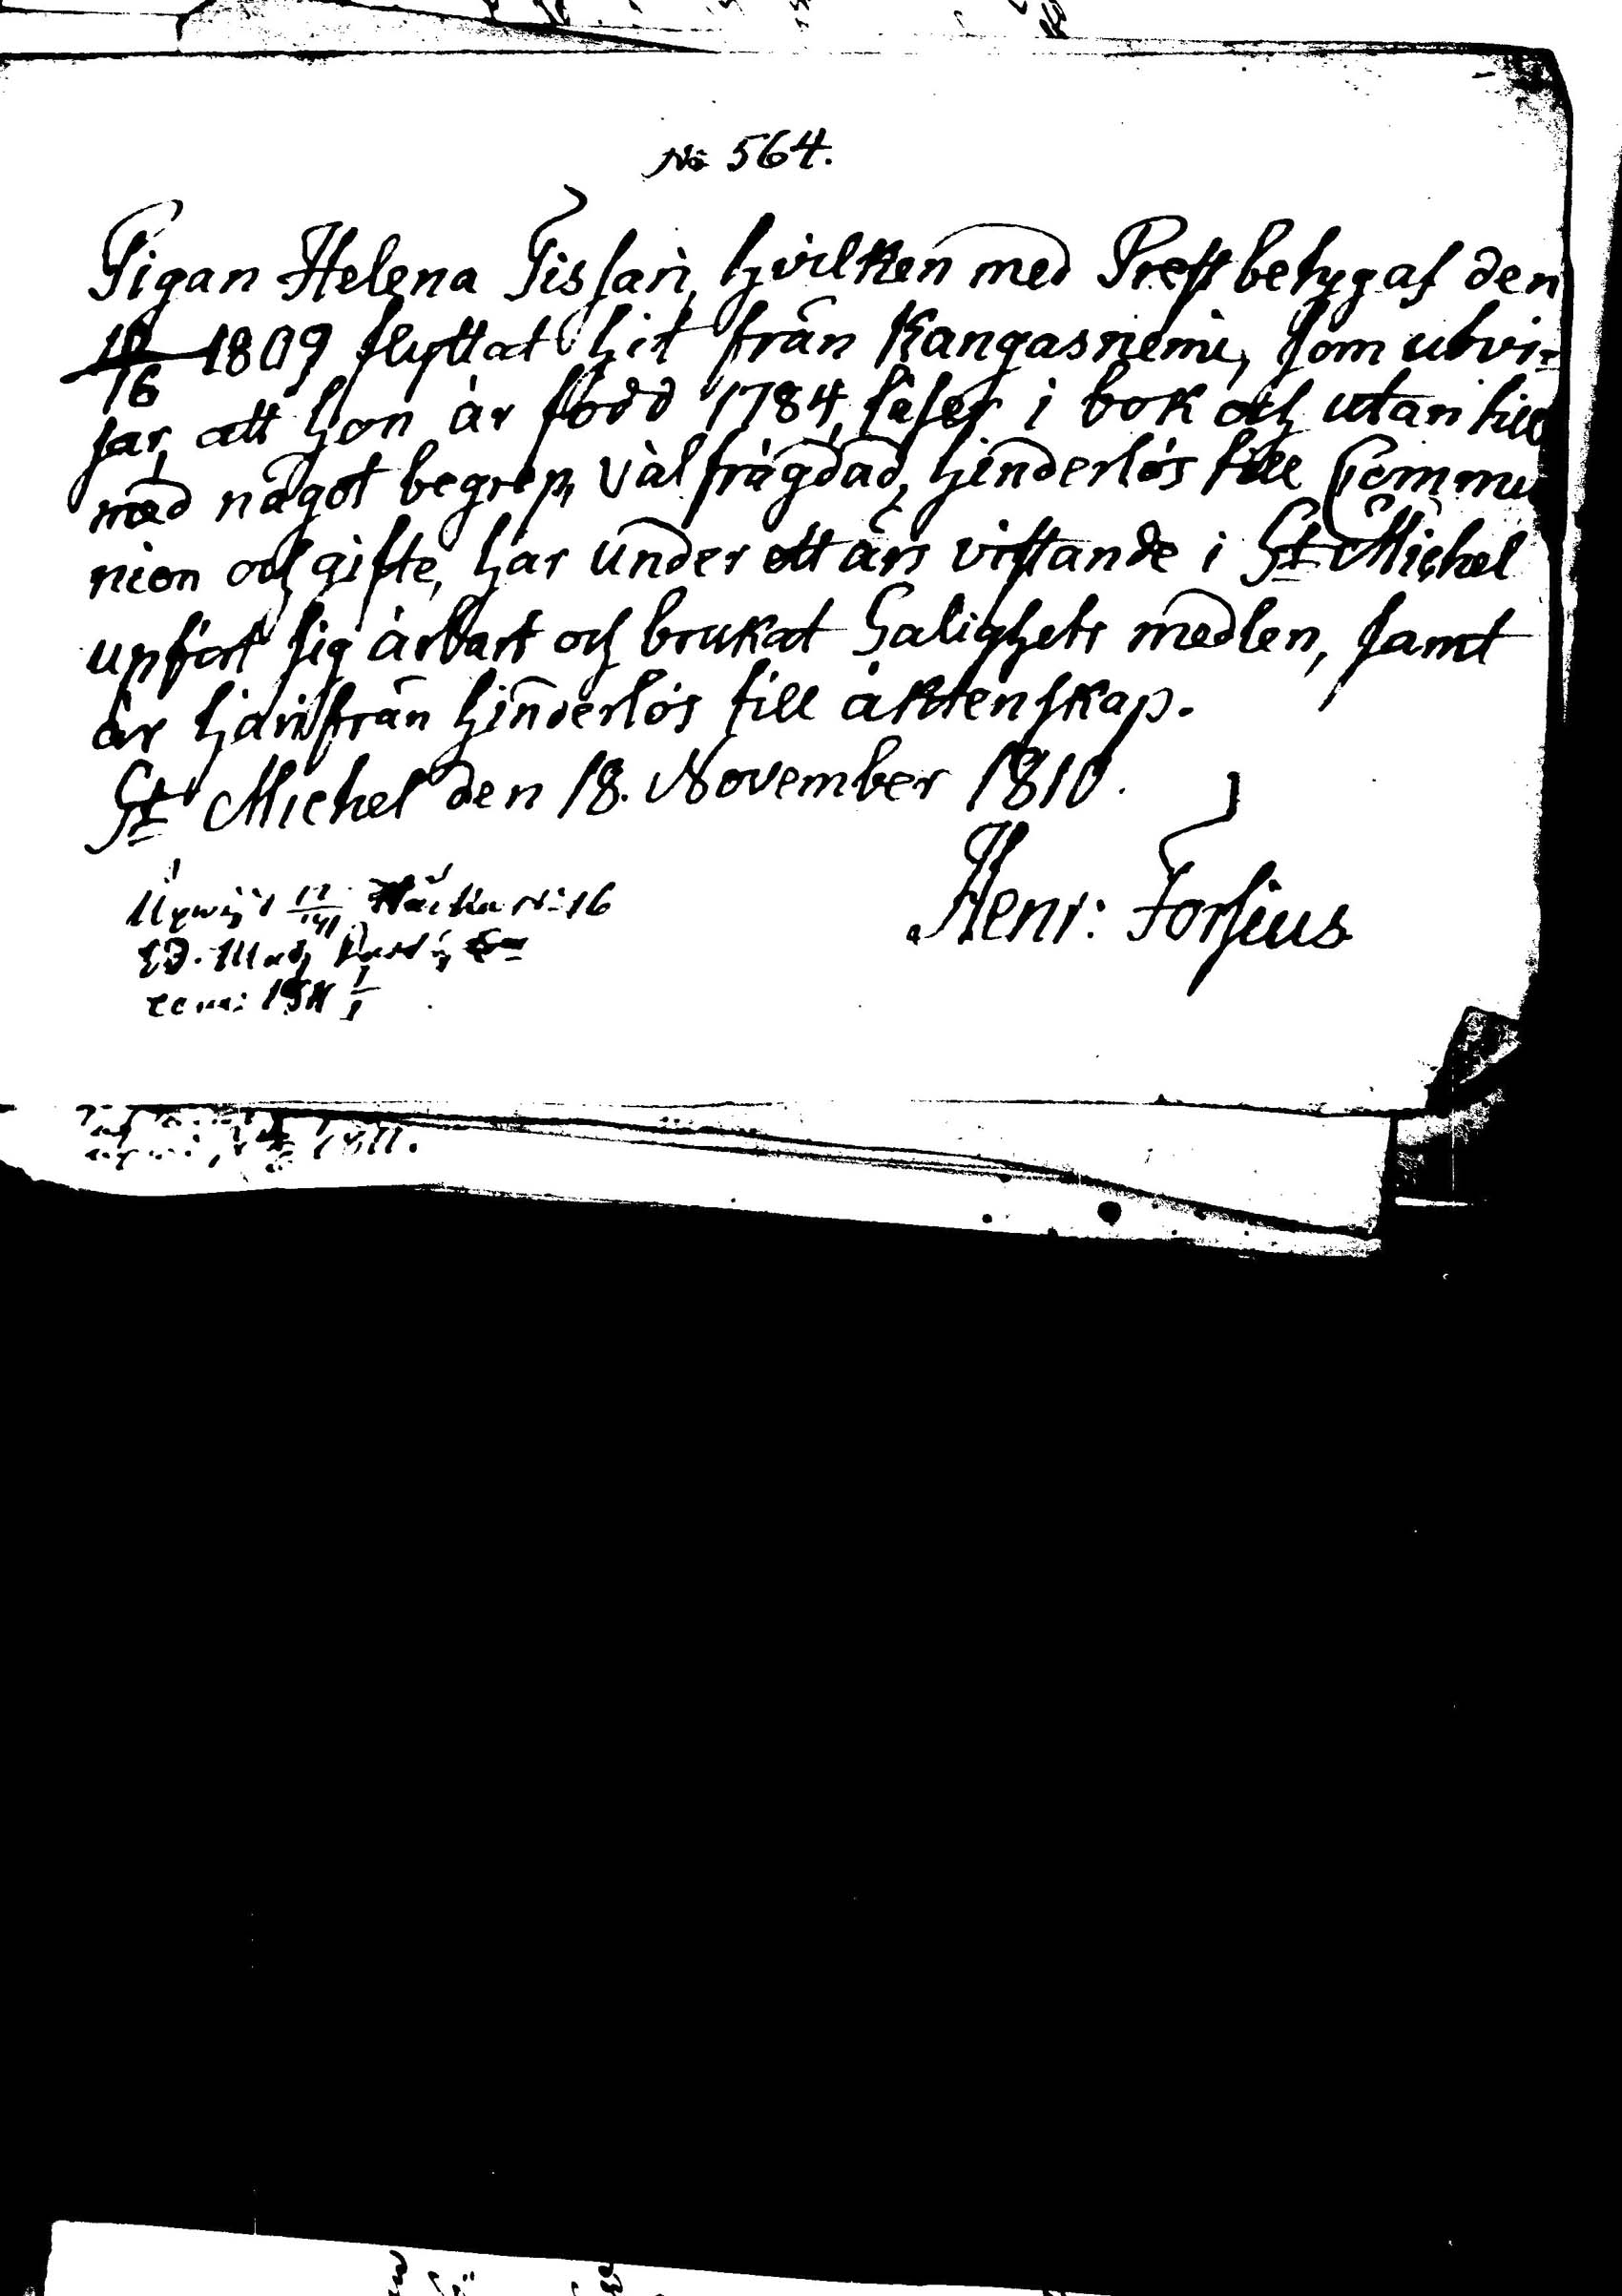 No 564.
Pigan Helena Tissari, hvilken med Prestbetyg af den
10/16 1809 flyttat hit från Kangasniemi, som utvi-
sar, att hon är född 1784, läser i bok och utan till
med något begrep, välfrägdad, hinderlös till Commu
nion och gifte, har under ett års vistande i St Michel
upfört sig ärbart och brukat Salighets medlen, samt
är härifrån hinderlös till äktenskap.
St Michel den 18. November 1810.
Henr: Forsius
16
1811.